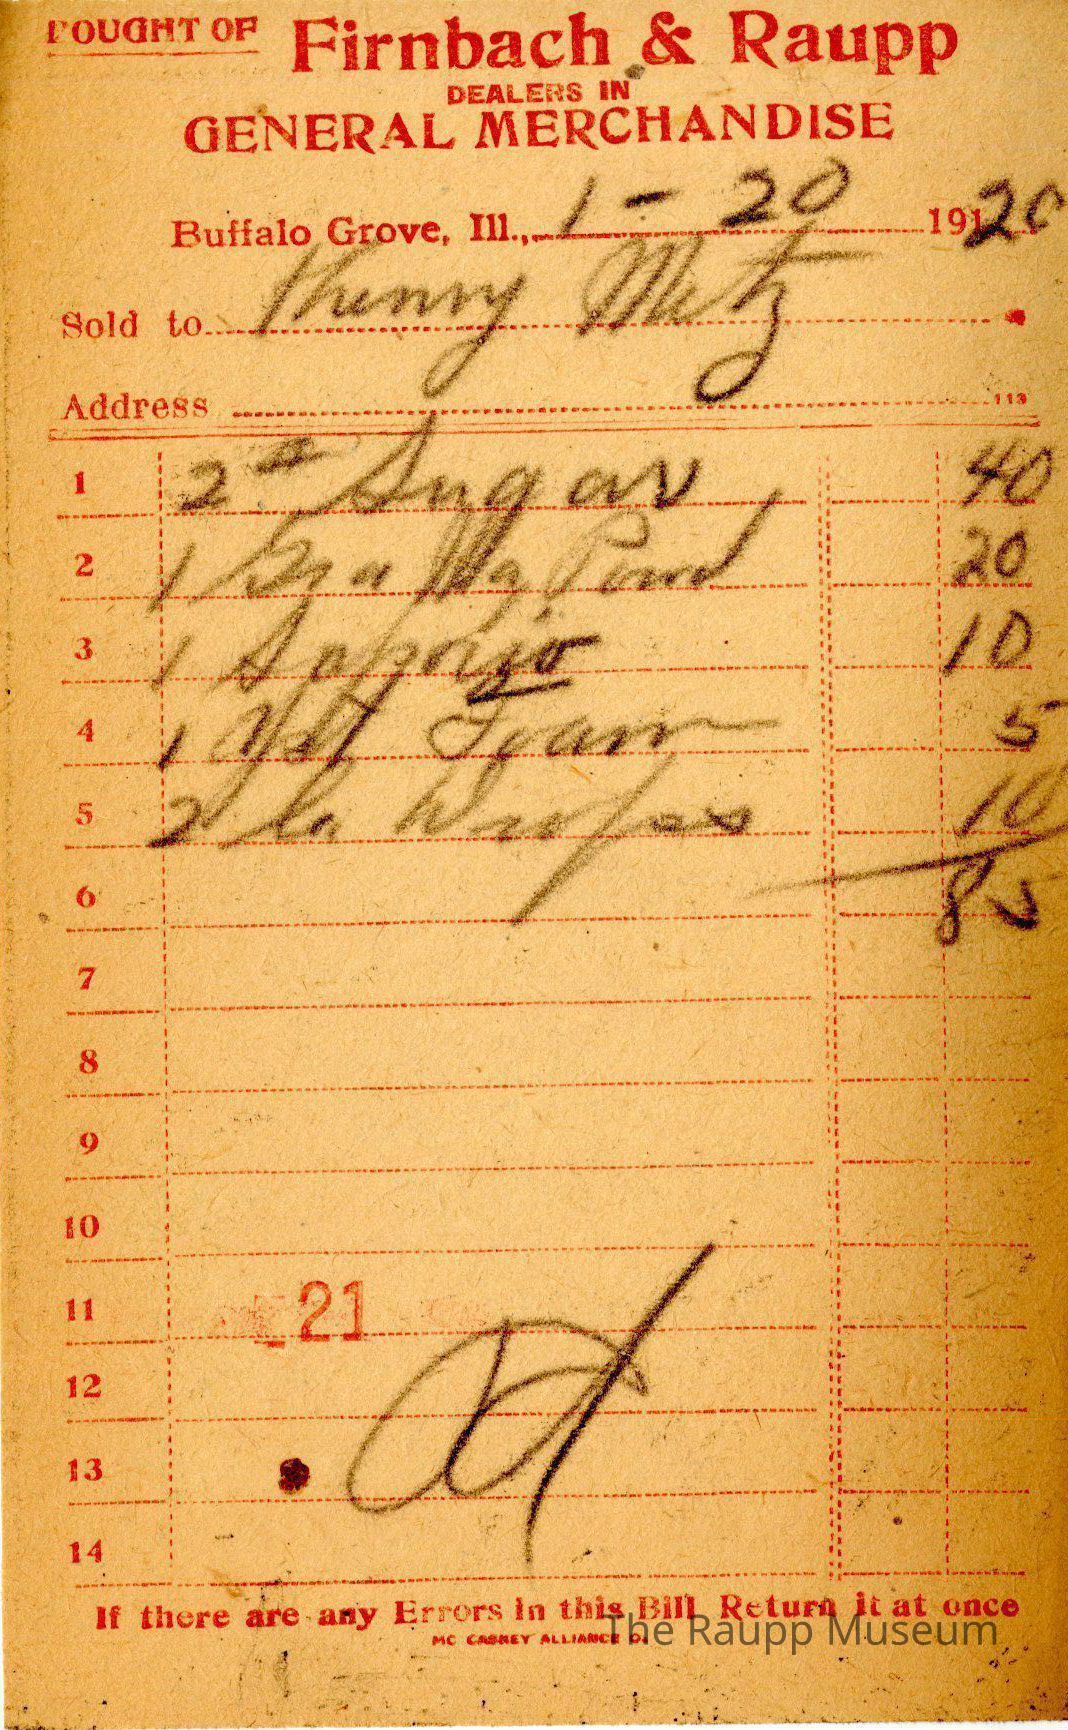 BOUGHT OF Firnbach & Raupp
DEALERS IN
GENERAL MERCHANDISE
Buffalo Grove, Ill., 1-20 191 20
Sold to Henry Metz
Address 113
1 2# Sugar 40
2 1 Pow 20
3 1 Sapolio 10
4 1 Yst Foam 5
5 2 10
6 85
7
8
9
10
11 21
12
13
14
If there are any Errors in this Bill Return it at once
The Raupp Museum